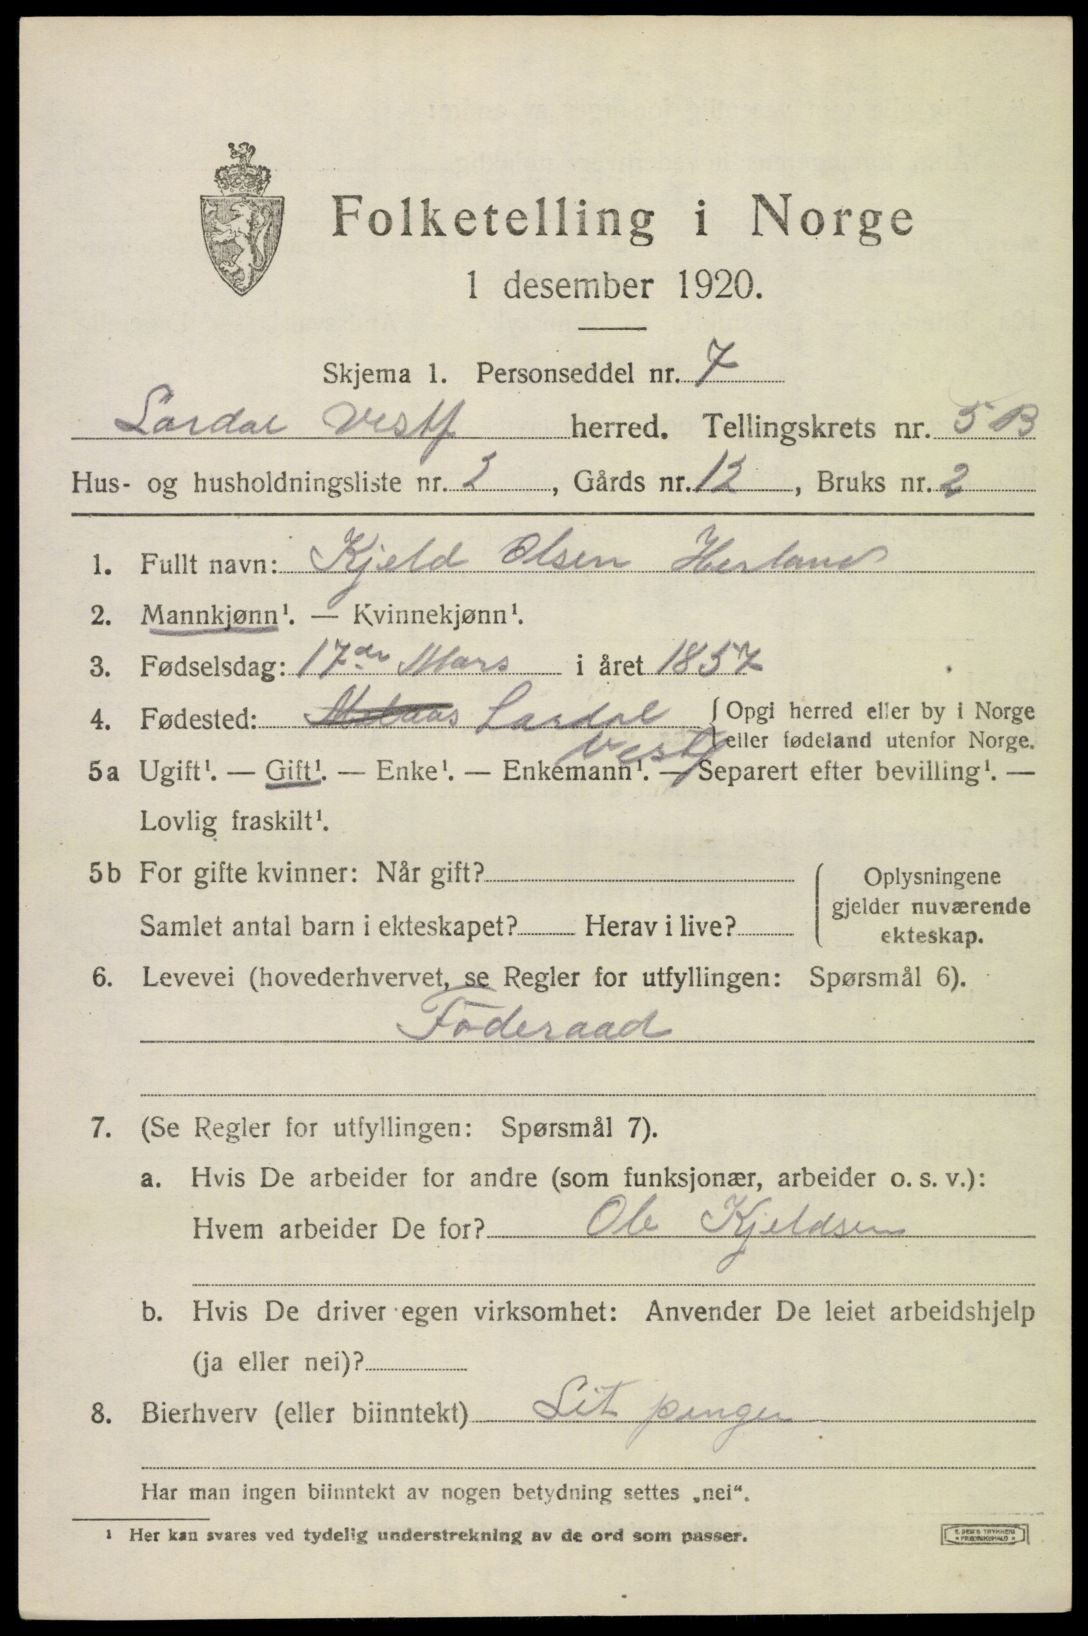 Folketelling i Norge
1 desember 1920.
Skjema 1. Personseddel nr. 7
Lardal Vestf herred. Tellingskrets nr. 5 B
Hus- og husholdningsliste nr. 3, Gårds nr. 12, Bruks nr. 2
1. Fullt navn: Kjeld Olsen Herland
2. Mannkjønn¹. — Kvinnekjønn¹.
3. Fødselsdag: 17de Mars i året 1857
4. Fødested: Lardal { Opgi herred eller by i Norge
Vestf eller fødeland utenfor Norge.
5a Ugift¹. — Gift¹. — Enke¹. — Enkemann¹. — Separert efter bevilling¹. —
Lovlig fraskilt¹.
5b For gifte kvinner: Når gift? { Oplysningene
gjelder nuværende
Samlet antal barn i ekteskapet? Herav i live? ekteskap.
6. Levevei (hovederhvervet, se Regler for utfyllingen: Spørsmål 6).
Föderaad
7. (Se Regler for utfyllingen: Spørsmål 7).
a. Hvis De arbeider for andre (som funksjonær, arbeider o. s. v.):
Hvem arbeider De for? Ole Kjeldsen
b. Hvis De driver egen virksomhet: Anvender De leiet arbeidshjelp
(ja eller nei)?
8. Bierhverv (eller biinntekt) Lit penger
Har man ingen biinntekt av nogen betydning settes „nei“.
¹ Her kan svares ved tydelig understrekning av de ord som passer.